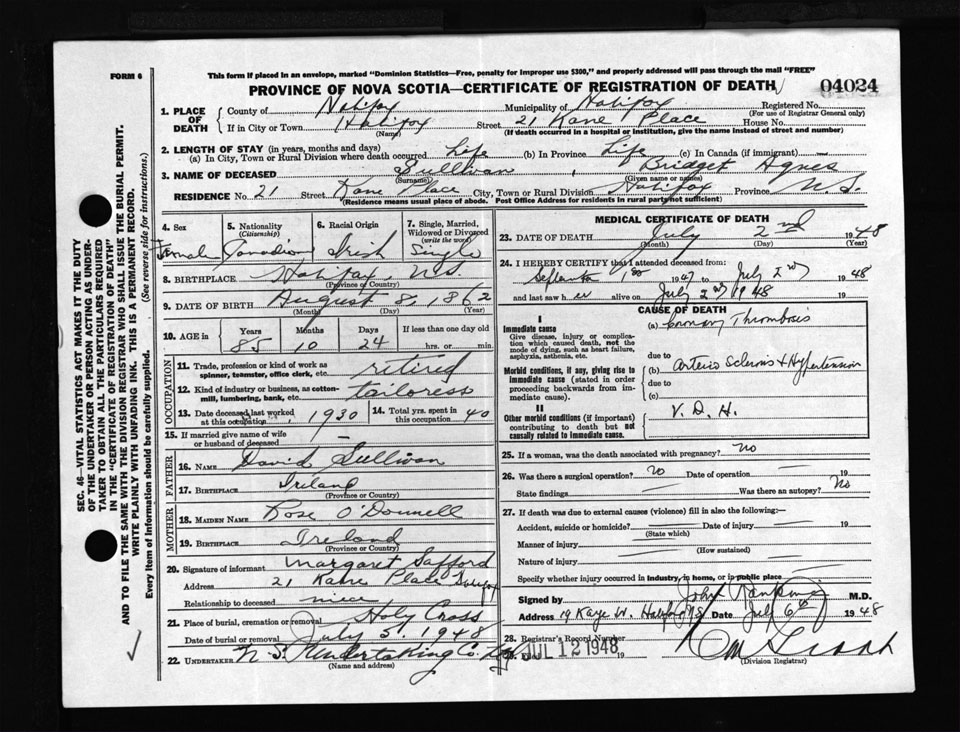 FORM 6
This form if placed in an envelope, marked "Dominion Statistics—Free, penalty for improper use $300," and properly addressed will pass through the mail "FREE"
PROVINCE OF NOVA SCOTIA—CERTIFICATE OF REGISTRATION OF DEATH
04024
1. PLACE OF DEATH
County of Halifax Municipality of Halifax Registered No.
(For use of Registrar General only)
If in City or Town Halifax Street 21 Kane Place House No.
(Name) (If death occurred in a hospital or institution, give the name instead of street and number)
2. LENGTH OF STAY (in years, months and days)
(a) In City, Town or Rural Division where death occurred Life (b) In Province Life (c) In Canada (if immigrant) —
3. NAME OF DECEASED Sullivan, Bridget Agnes
(Surname) (Given name or names)
RESIDENCE No. 21 Street Kane Place City, Town or Rural Division Halifax Province N.S.
(Residence means usual place of abode. Post Office Address for residents in rural parts not sufficient)
4. Sex Female
5. Nationality (Citizenship) Canadian
6. Racial Origin Irish
7. Single, Married, Widowed or Divorced (write the word) Single
8. BIRTHPLACE Halifax, N.S.
(Province or Country)
9. DATE OF BIRTH August 8, 1862
(Month) (Day) (Year)
10. AGE in Years Months Days If less than one day
85 10 24 hrs. or min.
OCCUPATION
11. Trade, profession or kind of work as spinner, teamster, office clerk, etc. retired
12. Kind of industry or business, as cotton-mill, lumbering, bank, etc. tailoress
13. Date deceased last worked at this occupation 1930
14. Total yrs. spent in this occupation 40
15. If married give name of wife or husband of deceased —
FATHER
16. NAME David Sullivan
17. BIRTHPLACE Ireland
(Province or Country)
MOTHER
18. MAIDEN NAME Rose O'Donnell
19. BIRTHPLACE Ireland
(Province or Country)
20. Signature of informant Margaret Safford
Address 21 Kane Place Halifax
Relationship to deceased niece
21. Place of burial, cremation or removal Holy Cross
Date of burial or removal July 5, 1948
22. UNDERTAKER N.S. Undertaking Co.
(Name and address)
MEDICAL CERTIFICATE OF DEATH
23. DATE OF DEATH July 2nd 1948
(Month) (Day) (Year)
24. I HEREBY CERTIFY that I attended deceased from:
1st 1947 to July 2nd 1948
and last saw her alive on July 2nd 1948
CAUSE OF DEATH
I
Immediate cause
Give disease, injury or complication which caused death, not the mode of dying, such as heart failure, asphyxia, asthenia, etc.
(a) Coronary Thrombosis
due to
Morbid conditions, if any, giving rise to immediate cause (stated in order proceeding backwards from immediate cause).
(b) Arterio Sclerosis & Hypertension
due to
(c)
II
Other morbid conditions (if important) contributing to death but not causally related to immediate cause.
V. D. H.
25. If a woman, was the death associated with pregnancy? no
26. Was there a surgical operation? no Date of operation — 19
State findings Was there an autopsy? No
27. If death was due to external causes (violence) fill in also the following:—
Accident, suicide or homicide? Date of injury 19
(State which)
Manner of injury
(How sustained)
Nature of injury
Specify whether injury occurred in industry, in home, or in public place
Signed by John M.D.
Address 19 Kaye St. Halifax N.S. Date July 6th 1948
28. Registrar's Record Number
29. Filed JUL 12 1948 19
(Division Registrar)
SEC. 46—VITAL STATISTICS ACT MAKES IT THE DUTY
OF THE UNDERTAKER OR PERSON ACTING AS UNDER-
TAKER TO OBTAIN ALL THE PARTICULARS REQUIRED
IN THE "CERTIFICATE OF REGISTRATION OF DEATH"
AND TO FILE THE SAME WITH THE DIVISION REGISTRAR WHO SHALL ISSUE THE BURIAL PERMIT.
WRITE PLAINLY WITH UNFADING INK. THIS IS A PERMANENT RECORD.
Every item of information should be carefully supplied. (See reverse side for instructions.)